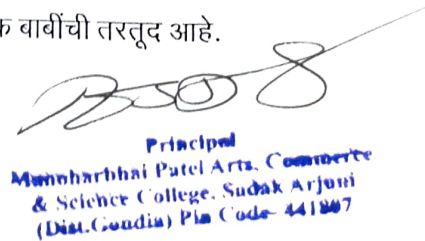 क बाबींची तरतूद आहे.
Principal
Munnharbhai Patel Arts, Commerce
& Science College, Sadak Arjuni
(Dist.Gondia) Pin Code- 441807